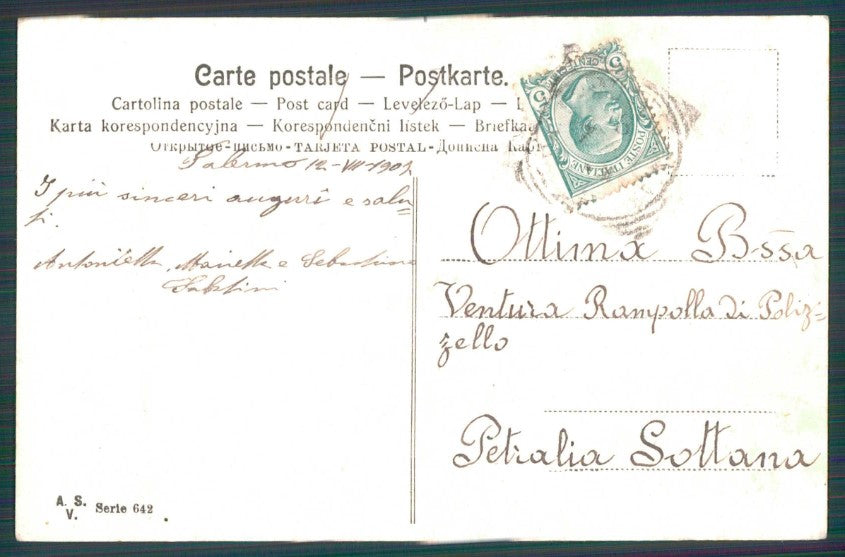 Carte postale — Postkarte.
Cartolina postale — Post card — Levelező-Lap —
Karta korespondencyjna — Korespondenčni lístek — Briefka
Открытое-письмо - TARJETA POSTAL - Дописна Кар
Palermo 12-VII-190
I più sinceri auguri e salu-
ti.
Antonietta, Marietta e Sebastiano
Sabatini
5 CENTESIMI 5
POSTE ITALIANE
Ottima B-ssa
Ventura Rampolla di Poliz-
zello
Petralia Sottana
A. S.
V. Serie 642